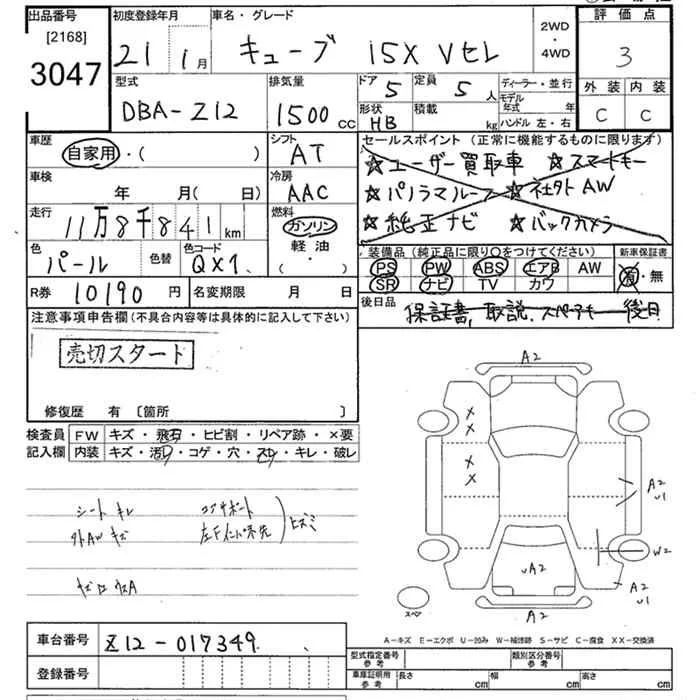 出品番号 初度登録年月 車名・グレード 2WD・4WD 評価点
[2168]
3047 21 1月 キューブ 15X Vセレ 3
型式 排気量 ドア 定員 ディーラー・並行 外装 内装
DBA-Z12 1500cc 5 5人 モデル年式 年 C C
形状 積載 ハンドル 左・右
HB kg
車歴 シフト セールスポイント (正常に機能するものに限ります)
自家用・( ) AT ☆ユーザー買取車 ☆スマートキー
車検 冷房 ☆パノラマルーフ ☆社外AW
年 月(日) AAC ☆純正ナビ ☆バックカメラ
走行 燃料
11万8千841km ガソリン
軽油
( ・ )
色 色替 色コード 装備品 (純正品に限り○をつけてください) 新車保証書
パール QX1 PS PW ABS エアB AW 有・無
SR ナビ TV カワ
R券 10190円 名変期限 月 日 後日品
保証書,取説,スペアキー 後日
注意事項申告欄(不具合内容等は具体的に記入して下さい)
売切スタート
修復歴 有 〔箇所 〕
検査員 FW キズ・飛石・ヒビ割・リペア跡・×要
記入欄 内装 キズ・汚レ・コゲ・穴・スレ・キレ・破レ
シート キレ コアサポート
外AW キズ 左Fインパネ先 ヒズミ
A2
×
×
×
×
A2
U1
W2
A2
U1
A2
A2
スペア
車台番号 Z12-017349
登録番号
A-キズ E-エクボ U-凹み W-補修跡 S-サビ C-腐食 XX-交換済
型式指定番号 参考 類別区分番号 参考
車庫証明用 参考 長さ cm 幅 cm 高さ cm